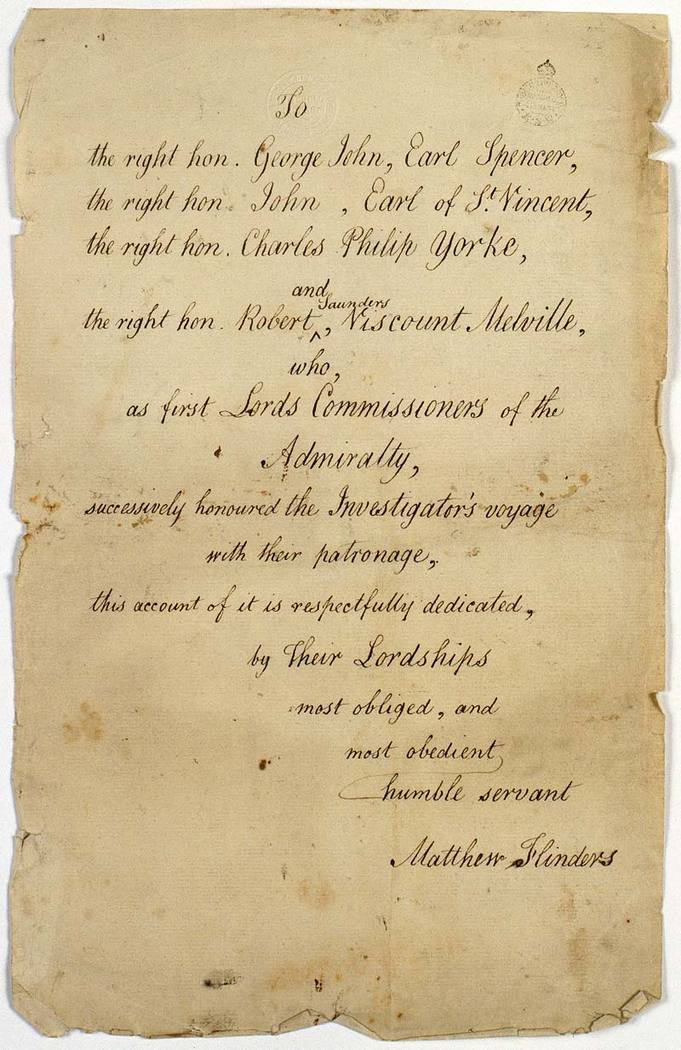 To
the right hon. George John, Earl Spencer,
the right hon. John , Earl of St. Vincent,
the right hon. Charles Philip Yorke,
and
the right hon. Robert Saunders, Viscount Melville,
who,
as first Lords Commissioners of the
Admiralty,
successively honoured the Investigator's voyage
with their patronage,
this account of it is respectfully dedicated,
by Their Lordships
most obliged, and
most obedient
humble servant
Matthew Flinders